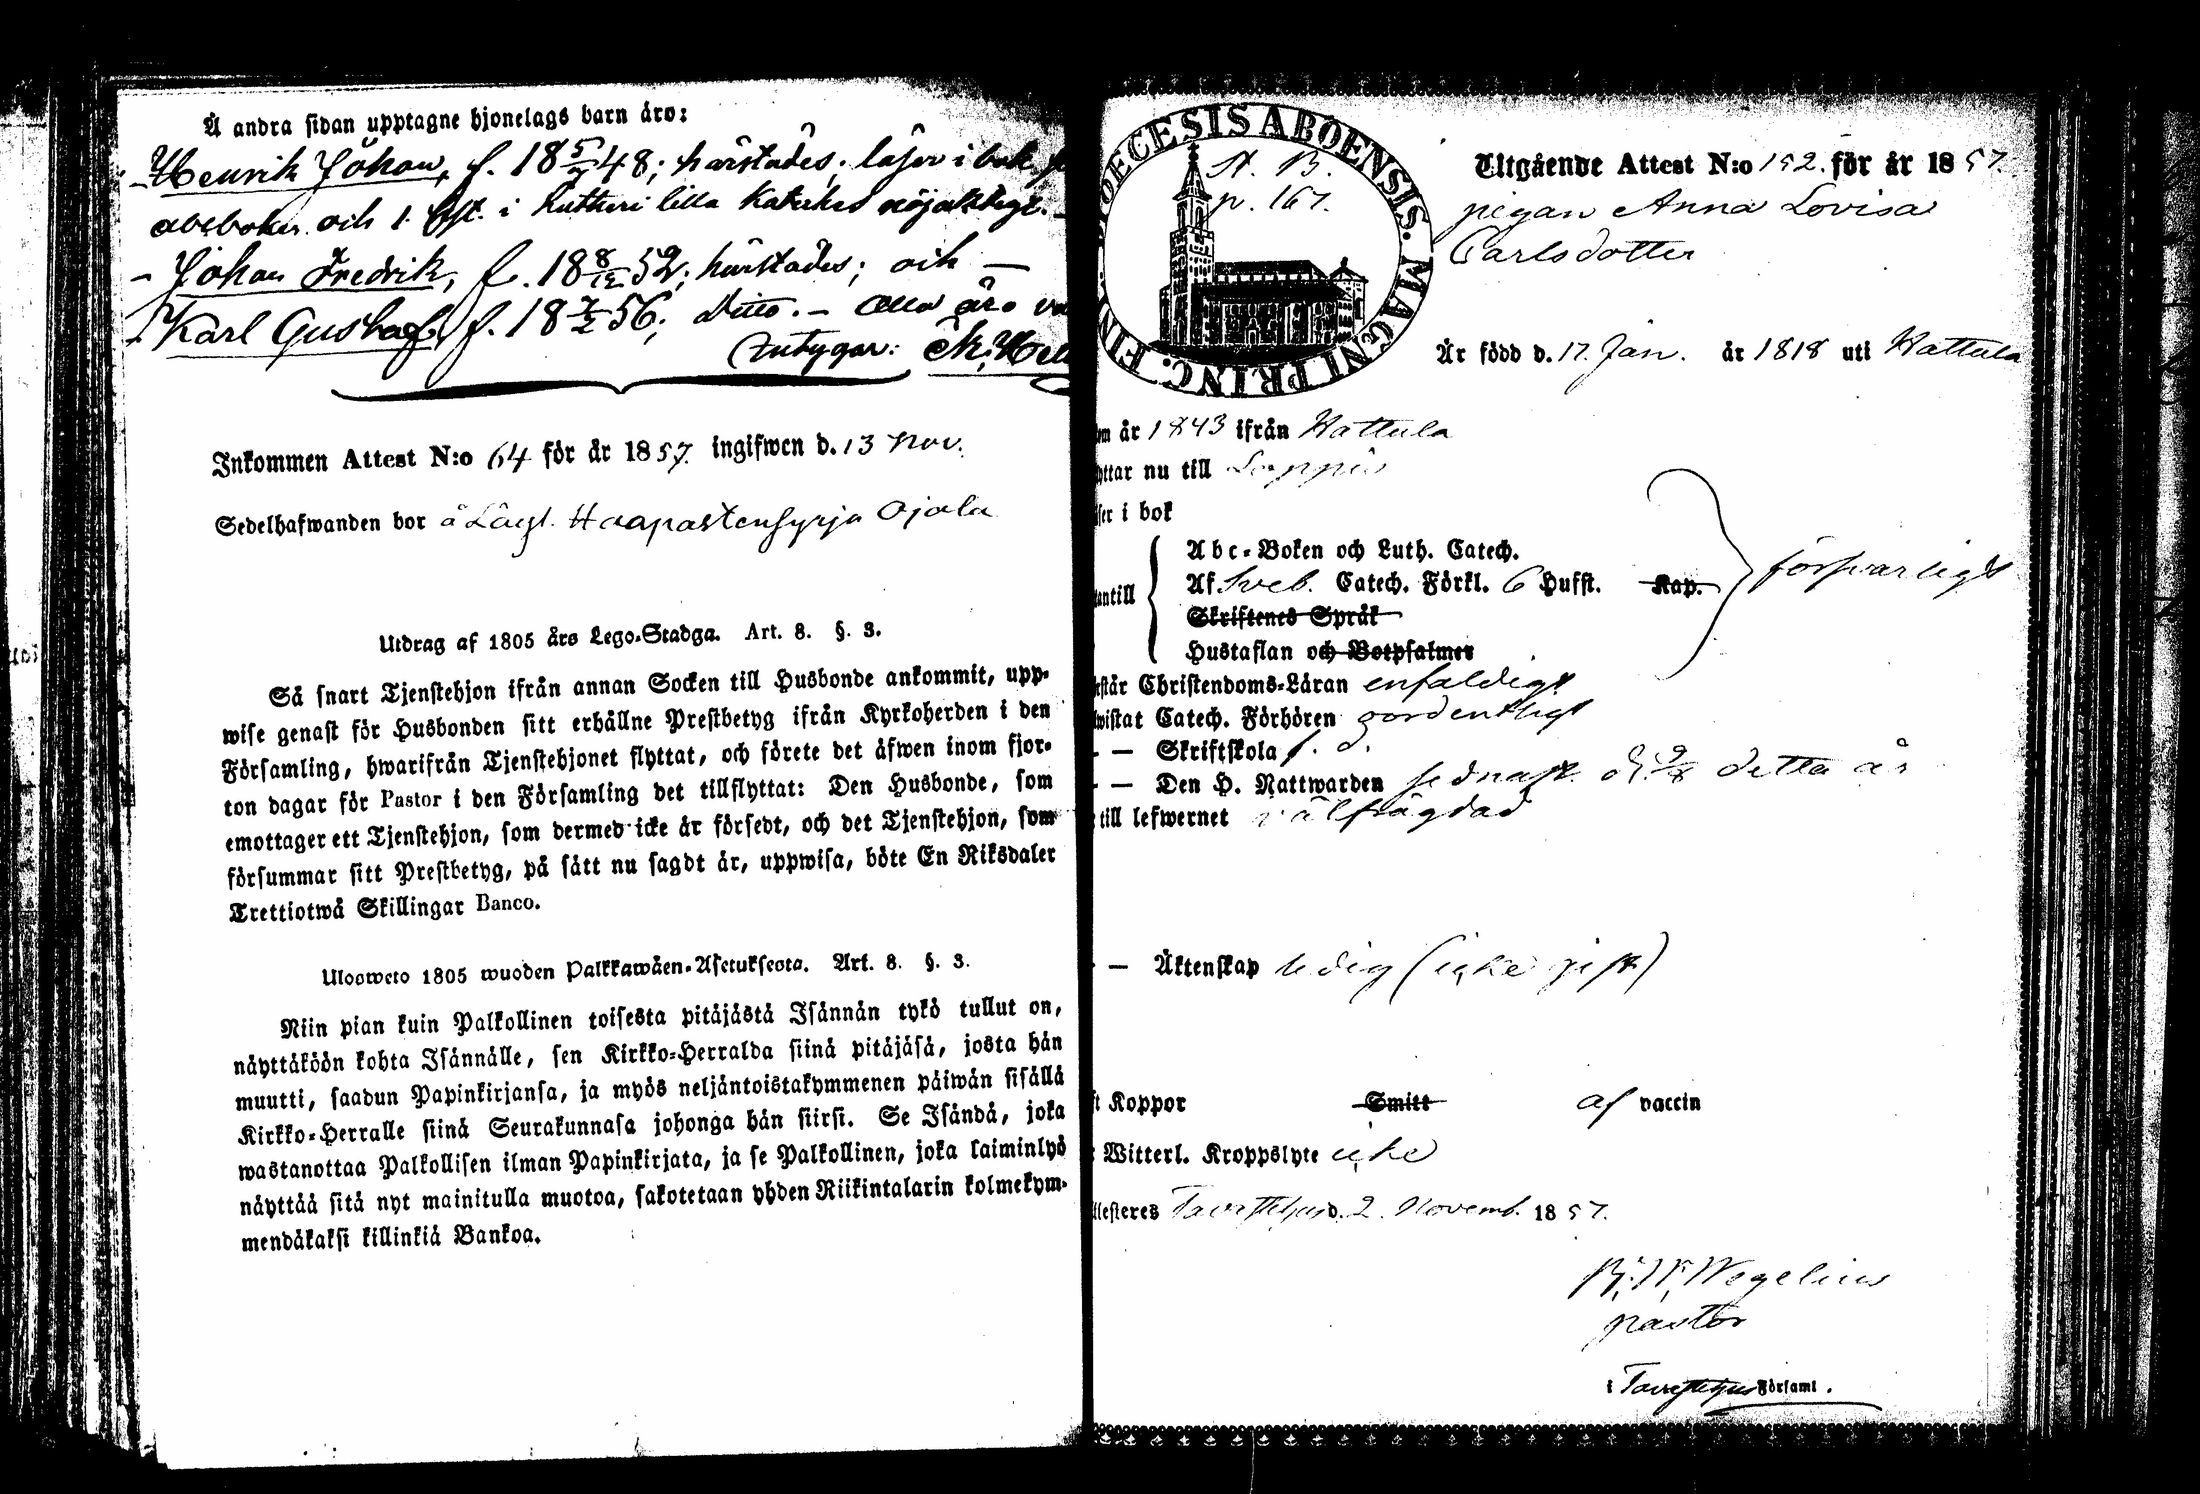 Å andra sidan upptagne hjonelags barn äro:
Henrik Johan, f. 18 5/7 48; härstädes; läser i bok
abcboken och 1. hst. i Lutheri lilla Katekes nöjaktigt. –
– Johan Fredrik, f. 18 8/12 52; härstädes; och –
– Karl Gustaf, f. 18 7/2 56; ditto. – Alla äro
intygar:
Inkommen Attest N:o 64 för år 1857. ingifwen d. 13 Nov.
Sedelhafwanden bor å Lägl. Haapastensyrja Ojala
Utdrag af 1805 års Lego-Stadga. Art. 8. §. 3.
Så snart Tjenstehjon ifrån annan Socken till Husbonde ankommit, upp-
wise genast för Husbonden sitt erhållne Prestbetyg ifrån Kyrkoherden i den
Församling, hwarifrån Tjenstehjonet flyttat, och förete det äfwen inom fjor-
ton dagar för Pastor i den Församling det tillflyttat: Den Husbonde, som
emottager ett Tjenstehjon, som dermed icke är försedt, och det Tjenstehjon, som
försummar sitt Prestbetyg, på sätt nu sagdt är, uppwisa, böte En Riksdaler
Trettiotwå Skillingar Banco.
Ulosweto 1805 wuoden Palkkawäen-Asetuksesta. Art. 8. §. 3.
Niin pian kuin Palkollinen toisesta pitäjästä Isännän tykö tullut on,
näyttäköön kohta Isännälle, sen Kirkko-Herralda siinä pitäjäsä, josta hän
muutti, saadun Papinkirjansa, ja myös neljäntoistakymmenen päiwän sisällä
Kirkko-Herralle siinä Seurakunnasa johonga hän siirsi. Se Isändä, joka
wastanottaa Palkollisen ilman Papinkirjata, ja se Palkollinen, joka laiminlyö
näyttää sitä nyt mainitulla muotoa, sakotetaan yhden Riikintalarin kolmekym-
mendäkaksi killinkiä Bankoa.
DIOECESIS ABOENSIS. MAGNI PRINC. FIN
St. B.
p. 167.
Utgående Attest N:o 152. för år 1857.
pigan Anna Lovisa
Carlsdotter
Är född d. 17. Jan. år 1818 uti Hattula
om år 1843 ifrån Hattula
yttar nu till Loppis
ser i bok
antill
Abc-Boken och Luth. Catech.
Af Sveb. Catech. Förkl. 6 Hufst. Kap.
försvarligt
Skriftenes Språk
Hustaflan och Botpsalmer
rstår Christendoms-Läran enfaldigt
wistat Catech. Förhören ordentligt
– – Skriftskola f. d.
– – Den H. Nattwarden sednast. d. 9/8 detta år
till lefwernet välfrägdad
– – Äktenskap ledig (icke gift)
ft Koppor Smitt af vaccin
Witterl. Kroppslyte icke
llesteres Tavastehus d. 2. Novemb. 1857.
Wegelius
pastor
i Tavastehus Församl.